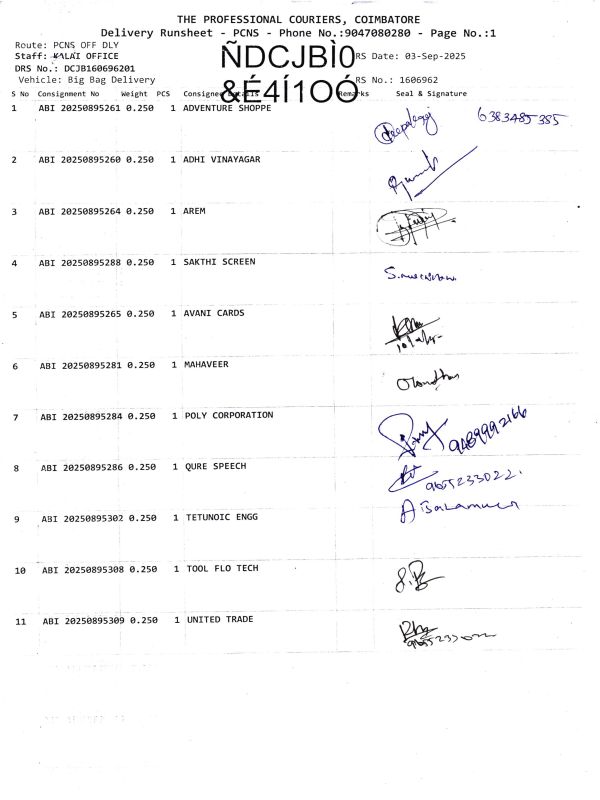 THE PROFESSIONAL COURIERS, COIMBATORE
Delivery Runsheet - PCNS - Phone No.:9047080280 - Page No.:1
Route: PCNS OFF DLY
ÑDCJBÌ0
RS Date: 03-Sep-2025
Staff: KALAI OFFICE
DRS No.: DCJB160696201
Vehicle: Big Bag Delivery
&É4Í1OÓ
RS No.: 1606962
S No Consignment No Weight PCS Consignee Details Remarks Seal & Signature
1 ABI 20250895261 0.250 1 ADVENTURE SHOPPE
6383485385
2 ABI 20250895260 0.250 1 ADHI VINAYAGAR
3 ABI 20250895264 0.250 1 AREM
4 ABI 20250895288 0.250 1 SAKTHI SCREEN
5 ABI 20250895265 0.250 1 AVANI CARDS
6 ABI 20250895281 0.250 1 MAHAVEER
7 ABI 20250895284 0.250 1 POLY CORPORATION
9489992166
8 ABI 20250895286 0.250 1 QURE SPEECH
9655233022.
9 ABI 20250895302 0.250 1 TETUNOIC ENGG
10 ABI 20250895308 0.250 1 TOOL FLO TECH
11 ABI 20250895309 0.250 1 UNITED TRADE
9655233022